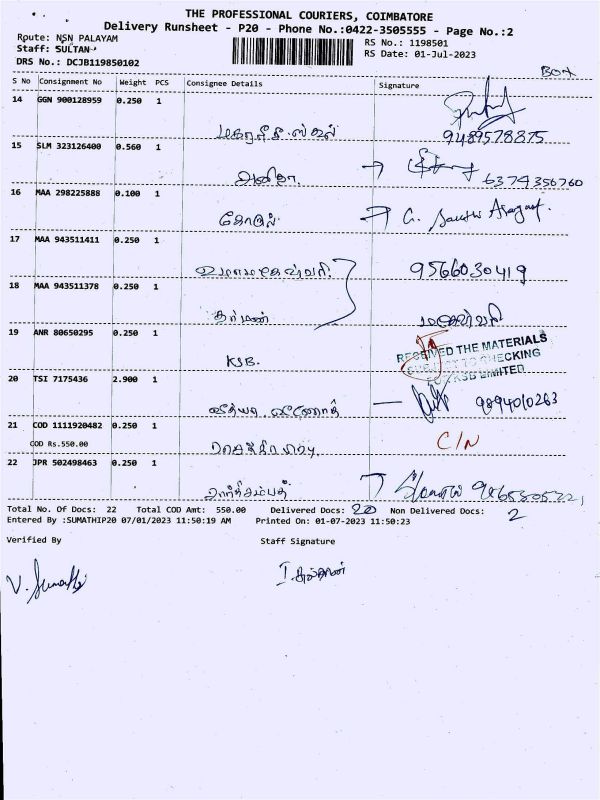 THE PROFESSIONAL COURIERS, COIMBATORE
Delivery Runsheet - P20 - Phone No.:0422-3505555 - Page No.:2
Route: NSN PALAYAM
RS No.: 1198501
Staff: SULTAN
RS Date: 01-Jul-2023
DRS No.: DCJB119850102
BOX
S No Consignment No Weight PCS Consignee Details Signature
14 GGN 900128959 0.250 1
9489578875
15 SLM 323126400 0.560 1
அனிதா
6374356760
16 MAA 298225888 0.100 1
கோகுல்
17 MAA 943511411 0.250 1
9566030419
18 MAA 943511378 0.250 1
19 ANR 80650295 0.250 1
KSB.
RECEIVED THE MATERIALS
SUBJECT TO CHECKING
KSB LIMITED
20 TSI 7175436 2.900 1
9894010263
21 COD 1111920482 0.250 1
C/N
COD Rs.550.00
22 JPR 502498463 0.250 1
Total No. Of Docs: 22 Total COD Amt: 550.00 Delivered Docs: 20 Non Delivered Docs: 2
Entered By :SUMATHIP20 07/01/2023 11:50:19 AM Printed On: 01-07-2023 11:50:23
Verified By Staff Signature
V. Sumathi
I. சுல்தான்